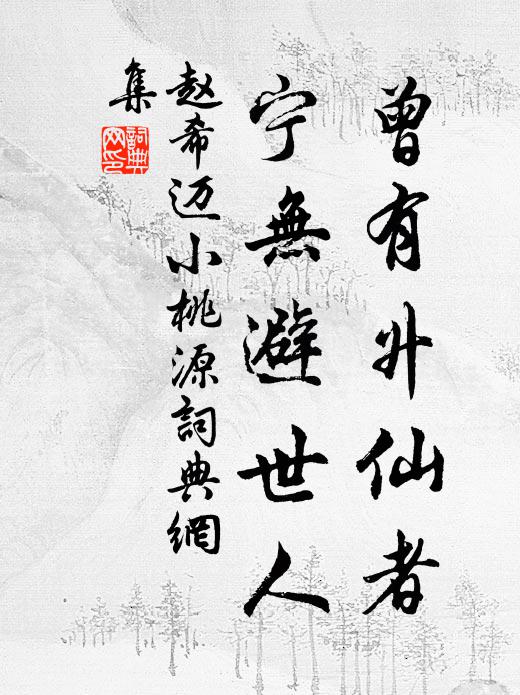 曾有升仙者
宁無避世人
赵希迈小桃源詞典網
集
詞典
网印